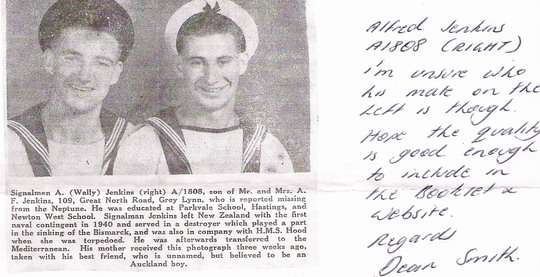 Signalman A. (Wally) Jenkins (right) A/1808, son of Mr. and Mrs. A.
F. Jenkins, 109, Great North Road, Grey Lynn, who is reported missing
from the Neptune. He was educated at Parkvale School, Hastings, and
Newton West School. Signalman Jenkins left New Zealand with the first
naval contingent in 1940 and served in a destroyer which played a part
in the sinking of the Bismarck, and was also in company with H.M.S. Hood
when she was torpedoed. He was afterwards transferred to the
Mediterranean. His mother received this photograph three weeks ago,
taken with his best friend, who is unnamed, but believed to be an
Auckland boy.
Alfred Jenkins
A1808 (RIGHT)
i'm unsure who
his mate on the
left is though.
Hope the quality
is good enough
to include in
the Booklet &
website.
Regards
Dean Smith.